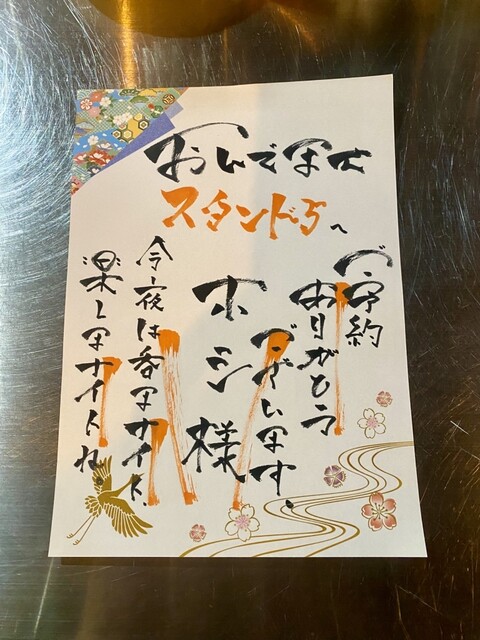 おいでませ
スタンド へ
ご予約
ありがとう
ございます、
ホシ様
今夜は呑まナイト、
楽しまナイトね